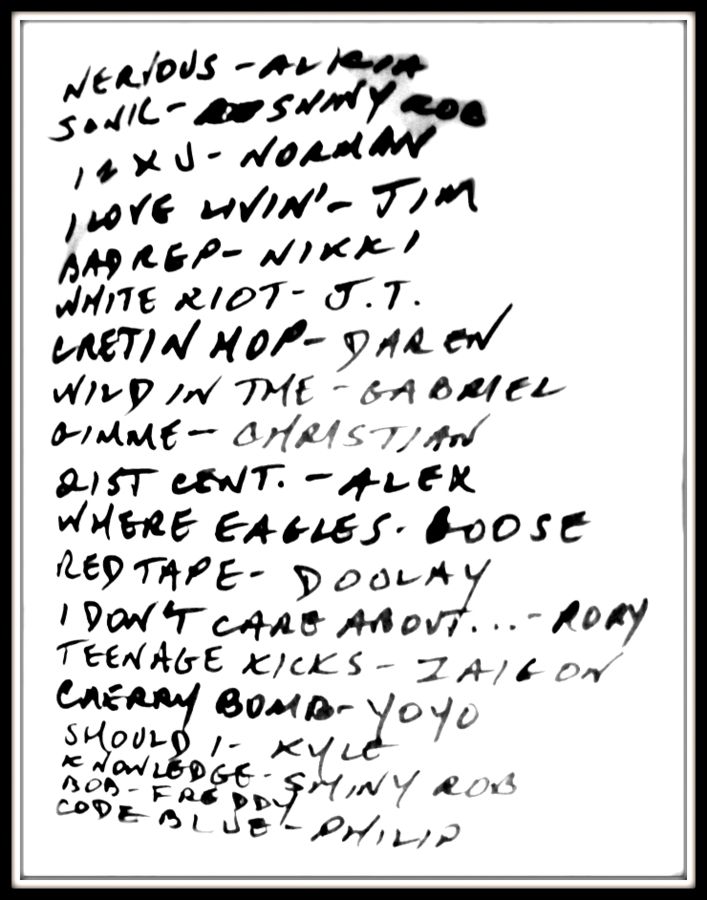 NERVOUS - ALICIA
SONIC - SHINY ROB
12 X U - NORMAN
I LOVE LIVIN' - JIM
BAD REP - NIKKI
WHITE RIOT - J.T.
CRETIN HOP - DAREN
WILD IN THE - GABRIEL
GIMME - CHRISTIAN
21ST CENT. - ALEX
WHERE EAGLES - GOOSE
RED TAPE - DOOLAY
I DON'T CARE ABOUT... - RORY
TEENAGE KICKS - ZAIGON
CHERRY BOMB - YOYO
SHOULD I - KYLE
KNOWLEDGE - SHINY ROB
BOB - FREDDY
CODE BLUE - PHILIP